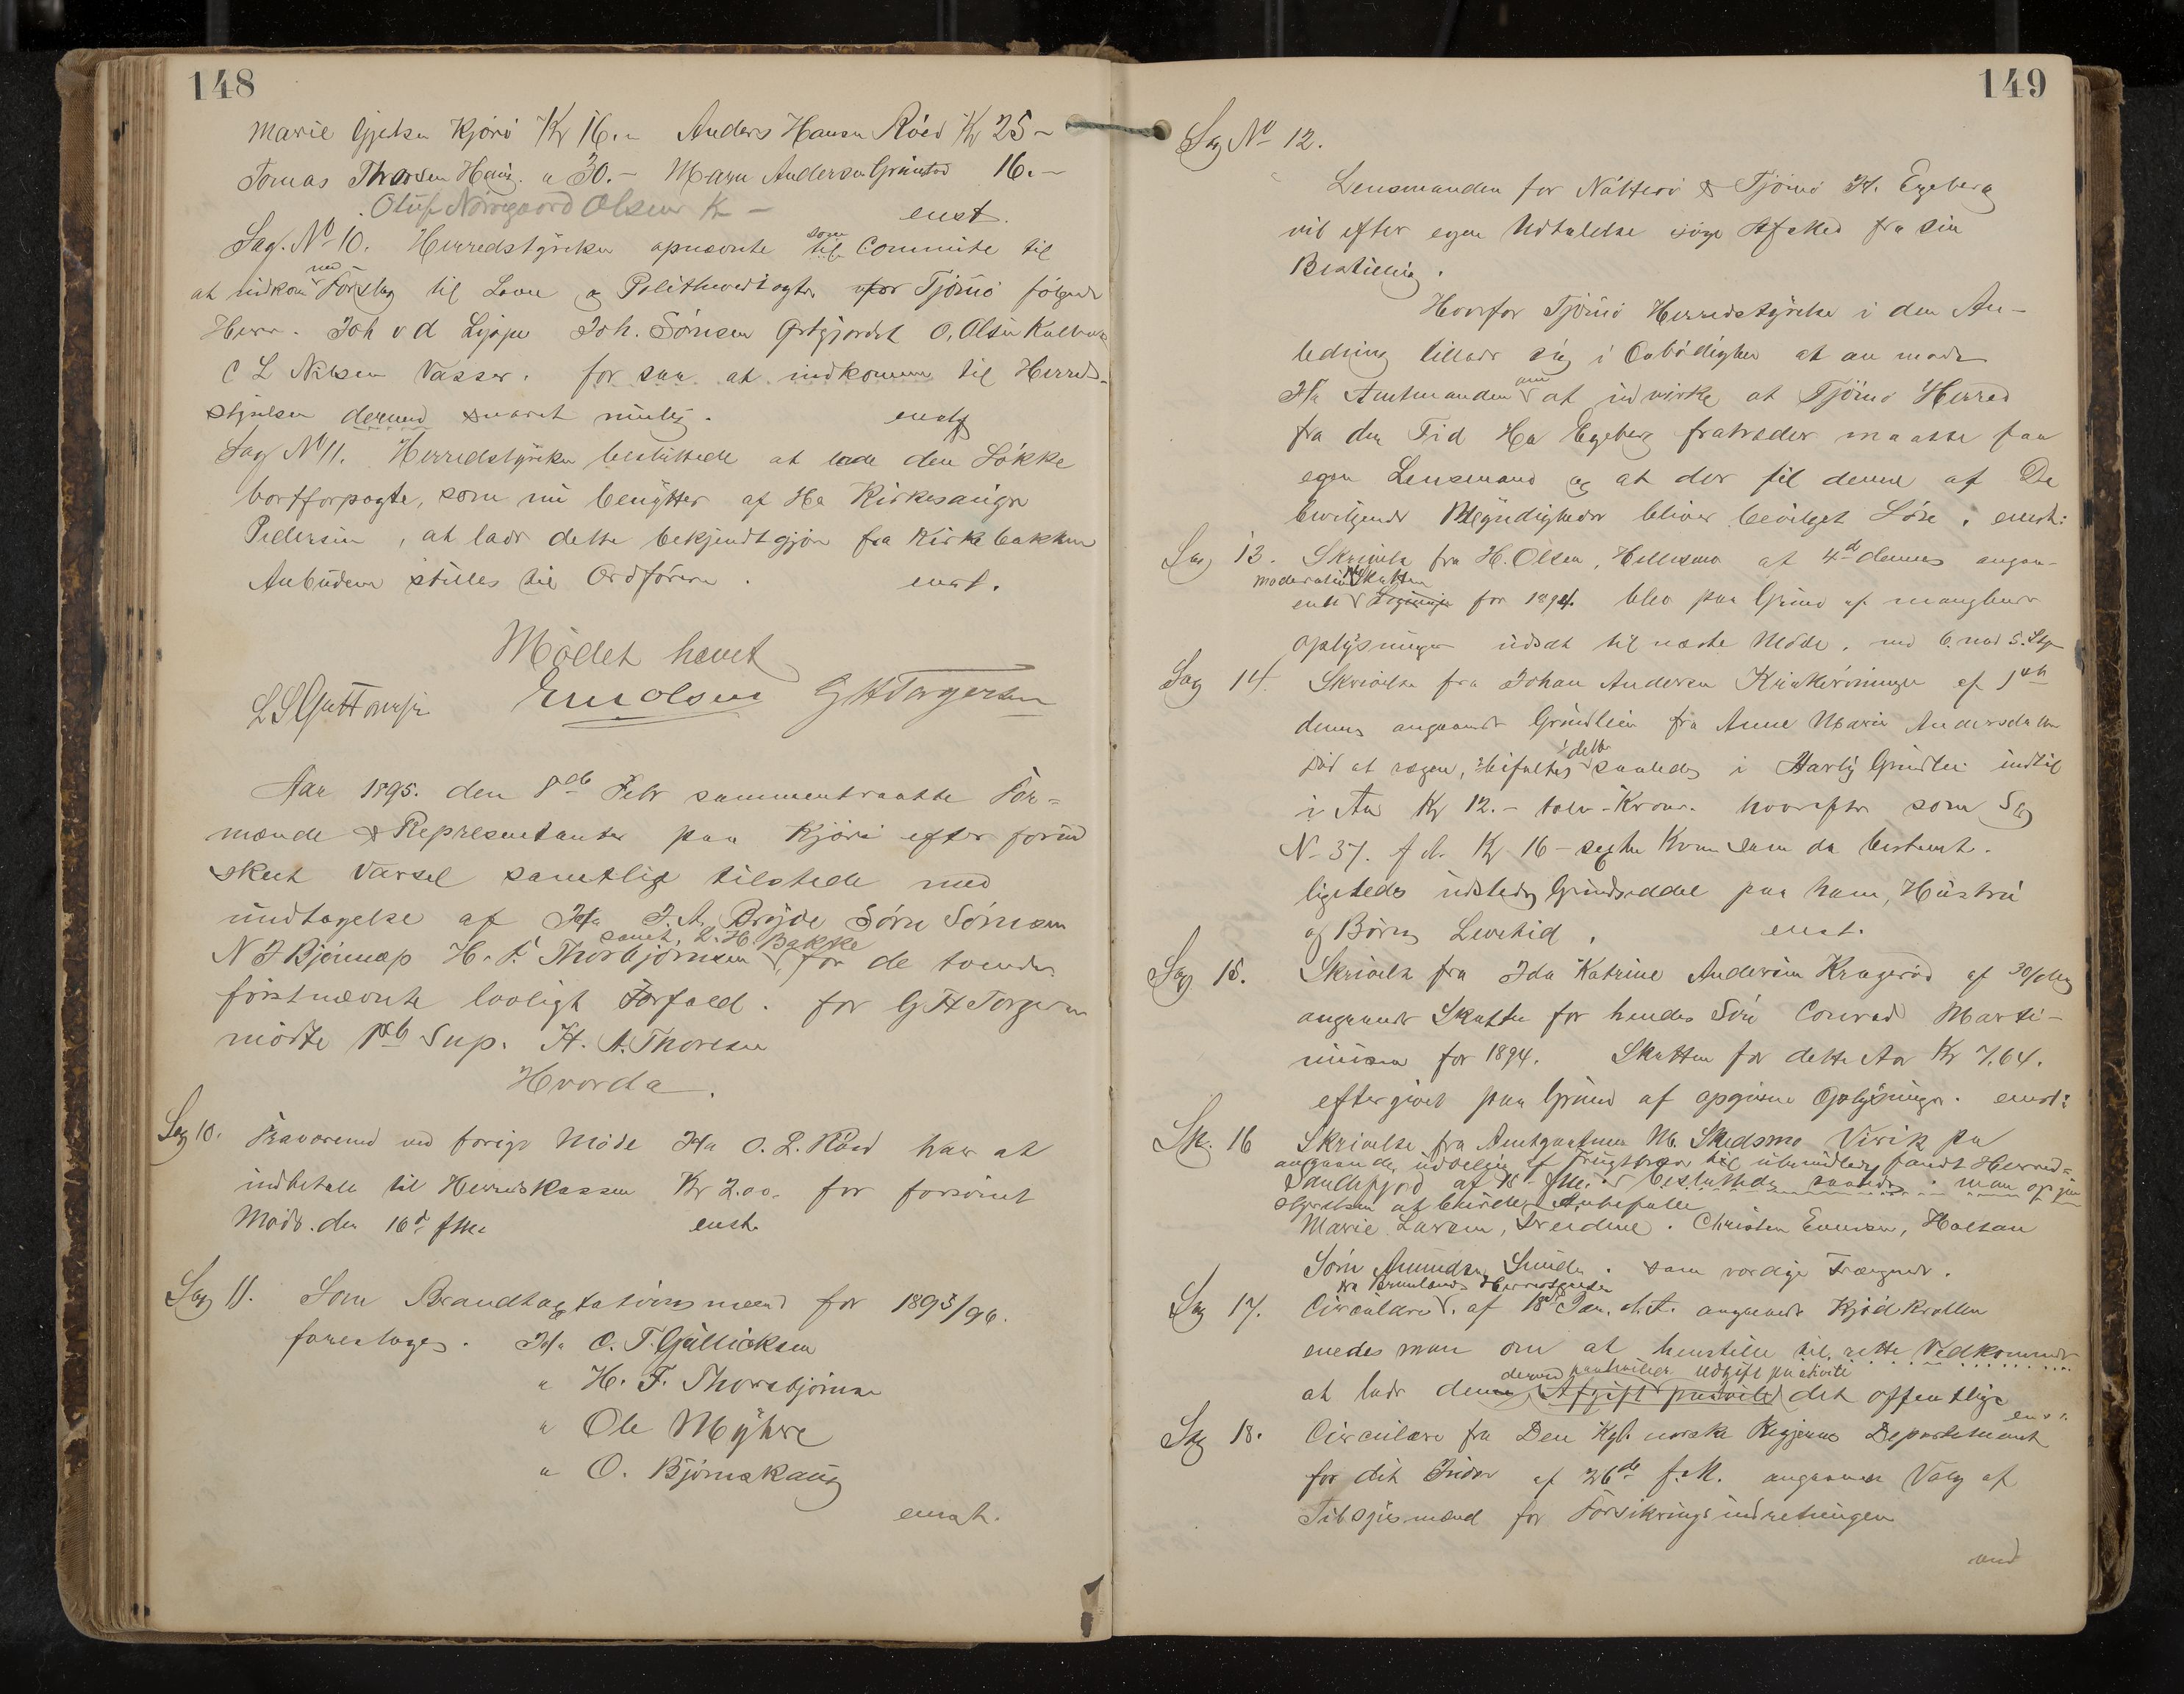 148
Marie Gjetsen Kjørø Kr 16.- Anders Hansen Røed Kr 25-
Tomas Thorsen Haug. " 30.- Maren Andersen Grimstad 16.-
Oluf Nørregaard Olsen Kr -
enst.
Sag. No 10. Herredstyrelsen opnævnte som til Commite til
at indkom med Forslag til Love og Politivedtægter for Tjømø følgende
Herr. Joh v d Lippe Joh. Sørnsen Østgjordet O. Olsen
C L Nilsen Vasser. for saa at indkomme til Herreds-
styrelsen dermed snarest mulig. enst
Sag No 11. Herredstyrelsen besluttede at lade den Løkke
bortforpagte, som nu benyttes af Hr Kirkesanger
Pedersen, at lade dette bekjendtgjøre fra Kirkebakken
Anbudene stilles til Ordføreren. enst.
Mødet hævet
L S Guttormsen Em Olsen G H Torgersen
Aar 1895. den 8de Febr sammentraadte For-
mænde & Representanter paa Kjøre efter forud
skeet Varsel samtlige tilstede med
undtagelse af Hr J. A. Bryde Sørn Sørnsen
samt L. H. Bakke
N J Bjørnæs H. F. Thorbjørnsen, for de tvende
førstnævnte lovligt Forfald. for G H Torgersen
mødte 1ste Sup. H. A. Thoresen
Hvorda.
Sag 10. Fraværende ved forige Møde Hr O. L. Røed har at
indbetale til Herredskassen Kr 2.00. for forsømt
Møde. den 16de f.M. enst.
Sag 11. Som Brandtaxtationsmænd for 1895/96.
foreslages. Hr O. T. Gullicksen
" H. F. Thorbjørnsen
" Ole Myhre
" O. Bjørnskaug
enst.
149
Sag No 12.
Lensmanden for Nøtterø & Tjømø H. Egeberg
vil efter egen Udtalelse søge Afsked fra sin
Bestilling.
Hvorfor Tjømø Herredstyrelse i den An-
ledning tillader sig i Ærbødighed at an mode
Hr Amtmanden om at indvirke at Tjømø Herred
fra den Tid Hr Egeberg fratræder maatte faa
egen Lensmand og at der til denne af De
bevilgende Myndigheder bliver bevilget Løn. enst:
Sag 13. Skrivelse fra H. Olsen, Hellesmo af 4de dennes angaa-
moderation Skatten
ende Ligninge for 1894. blev paa Grund af manglende
oplysninger udsat til næste Møde. med 6 mod 5. St
Sag 14. Skrivelse fra Johan Andersen Krukerønningen af 1ste
dennes angaaende Grundleie fra Anne Marie Andersdatter
at ragen, saaledes i Aarlig Grundlei indtil
i Aar Kr 12.- tolv-Kroner. hvorefter som Sag
N. 37. f A. Kr 16-sexten Kroner som da bestemt.
ligeledes udstedes Grundseddel paa ham, Hustru
og Børns Levetid. enst.
Sag 15. Skrivelse fra Ida Katrine Andersen Kragerød af 30/
angaaende Skatten for hendes Søn Conrad Marti-
niusen for 1894. Skatten for dette Aar Kr 7.64.
eftergivet paa Grund af opgivne Oplysninger. enst:
Sk. 16 Skrivelse fra Amtgartner M. Skedsmo Virik pr
angaaende uddeling af Frugttrær til ubemidlede fandt Herred-
Sandefjord af 15- f.M. besluttedes saaledes: man
styrelsen at burde Anbefale
Marie Larsen, Grendene. Christen Evensen, Holtan
Sørn Amundsen Sunde. som værdige Trængende.
fra Brunlanes Herredstyrelse
Sag 17. Circulære. af 18de Jan. d.A. angaaende Kjødkrollen
enedes man om at henstille til rette Vedkommende
derved paahvilende Udgift
at lade denne Afgift paahvile det offentlige
enst.
Sag 18. Circulære fra Den Kgl. norske Regjerings Departement
for det Indre af 26de f.M. angaaende Valg af
Tilsynsmænd for Forsikringsindretningen
ved